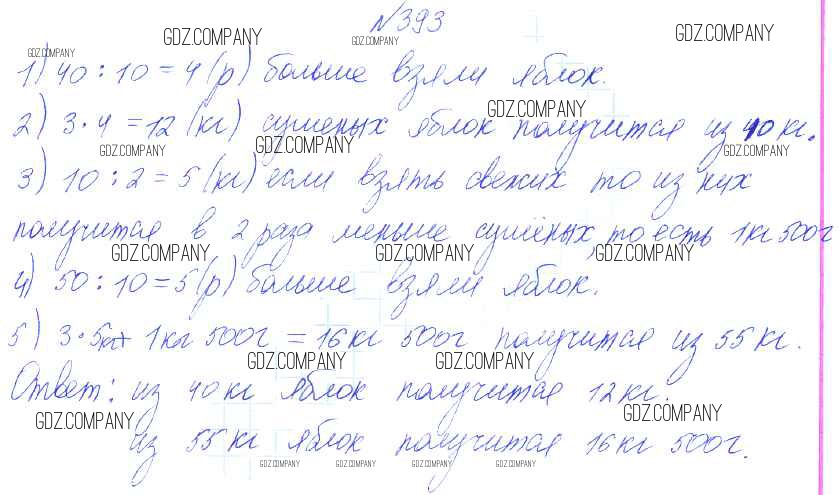 №393
GDZ.COMPANY GDZ.COMPANY GDZ.COMPANY GDZ.COMPANY
1) 40 : 10 = 4 (р) больше взяли яблок.
GDZ.COMPANY
2) 3 · 4 = 12 (кг) сушеных яблок получится из 40 кг.
GDZ.COMPANY GDZ.COMPANY GDZ.COMPANY
3) 10 : 2 = 5 (кг) если взять свежих то из них
получится в 2 раза меньше сушёных, то есть 1кг 500г
GDZ.COMPANY GDZ.COMPANY GDZ.COMPANY
4) 50 : 10 = 5 (р) больше взяли яблок.
5) 3 · 5кг + 1кг 500г = 16кг 500г получится из 55 кг.
GDZ.COMPANY GDZ.COMPANY
Ответ: из 40кг яблок получится 12кг.
GDZ.COMPANY GDZ.COMPANY
из 55кг яблок получится 16кг 500г.
GDZ.COMPANY GDZ.COMPANY GDZ.COMPANY GDZ.COMPANY